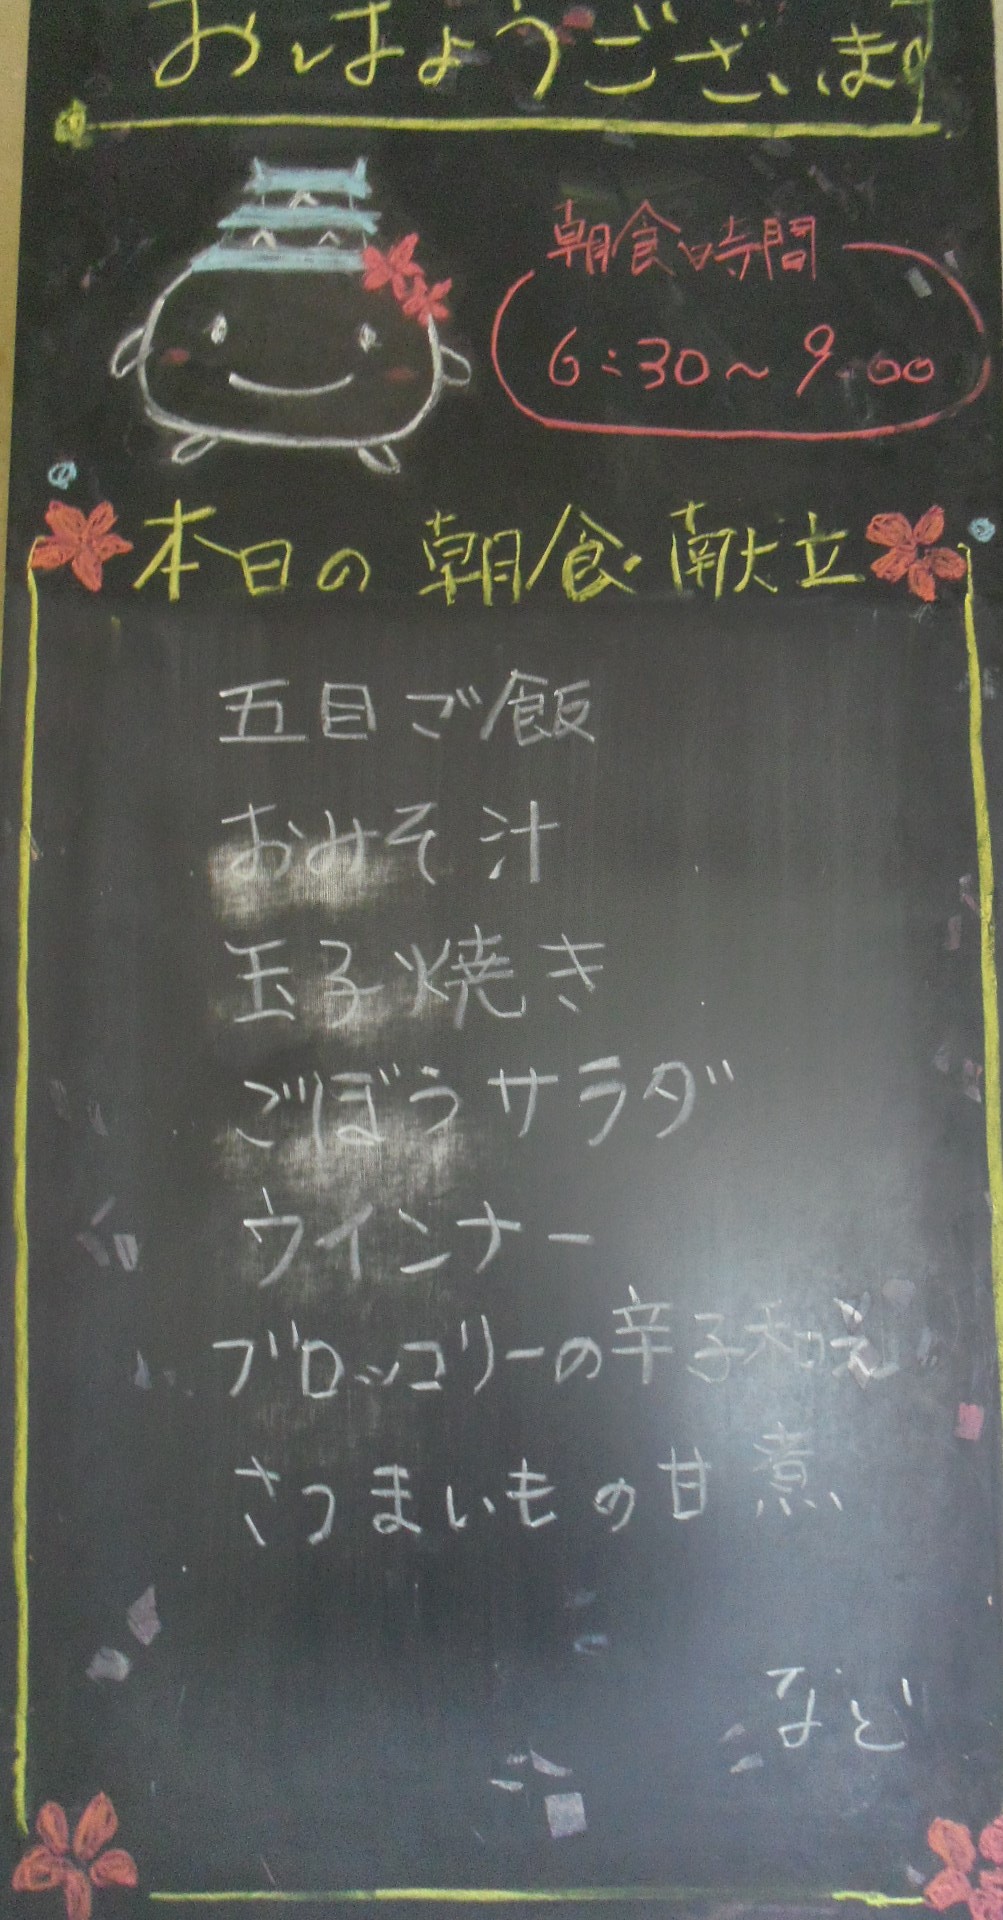 おはようございます
朝食時間
6:30~9:00
本日の朝食献立
五目ご飯
おみそ汁
玉子焼き
ごぼうサラダ
ウインナー
ブロッコリーの辛子和え
さつまいもの甘煮
など